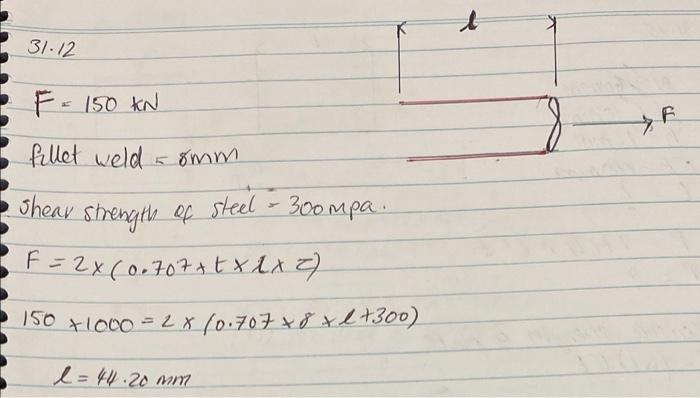 l
31.12
F
F = 150 kN
fillet weld = 8mm
shear strength of steel = 300mpa.
F = 2 x (0.707 x t x l x τ)
150 x 1000 = 2 x (0.707 x 8 x l x 300)
l = 44.20 mm